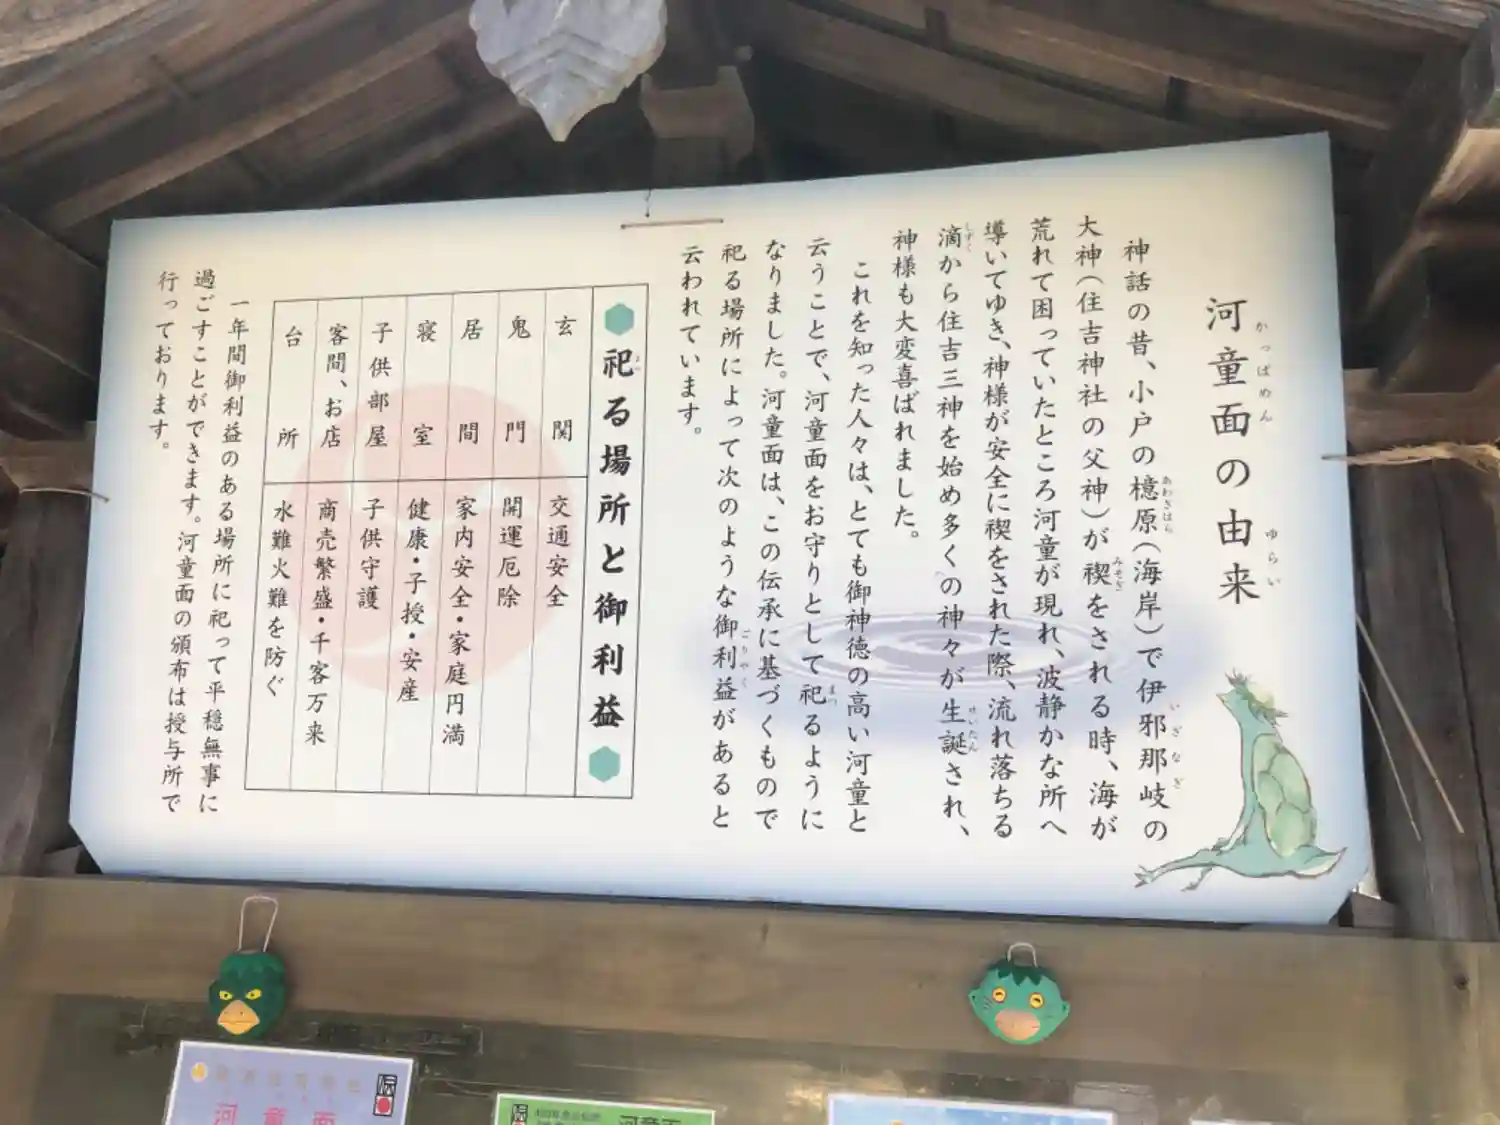 河童面の由来
かっぱめん
ゆらい
神話の昔、小戸の檍原(海岸)で伊邪那岐の
あわぎはら
いざなぎ
大神(住吉神社の父神)が禊をされる時、海が
みそぎ
荒れて困っていたところ河童が現れ、波静かな所へ
導いてゆき、神様が安全に禊をされた際、流れ落ちる
滴から住吉三神を始め多くの神々が生誕され、
しずく
せいたん
神様も大変喜ばれました。
これを知った人々は、とても御神徳の高い河童と
云うことで、河童面をお守りとして祀るように
まつ
なりました。河童面は、この伝承に基づくもので
祀る場所によって次のような御利益があると
ごりやく
云われています。
祀る場所と御利益
まつ
玄関 交通安全
鬼門 開運厄除
居間 家内安全・家庭円満
寝室 健康・子授・安産
子供部屋 子供守護
客間、お店 商売繁盛・千客万来
台所 水難火難を防ぐ
一年間御利益のある場所に祀って平穏無事に
過ごすことができます。河童面の頒布は授与所で
行っております。
河童面
河童面